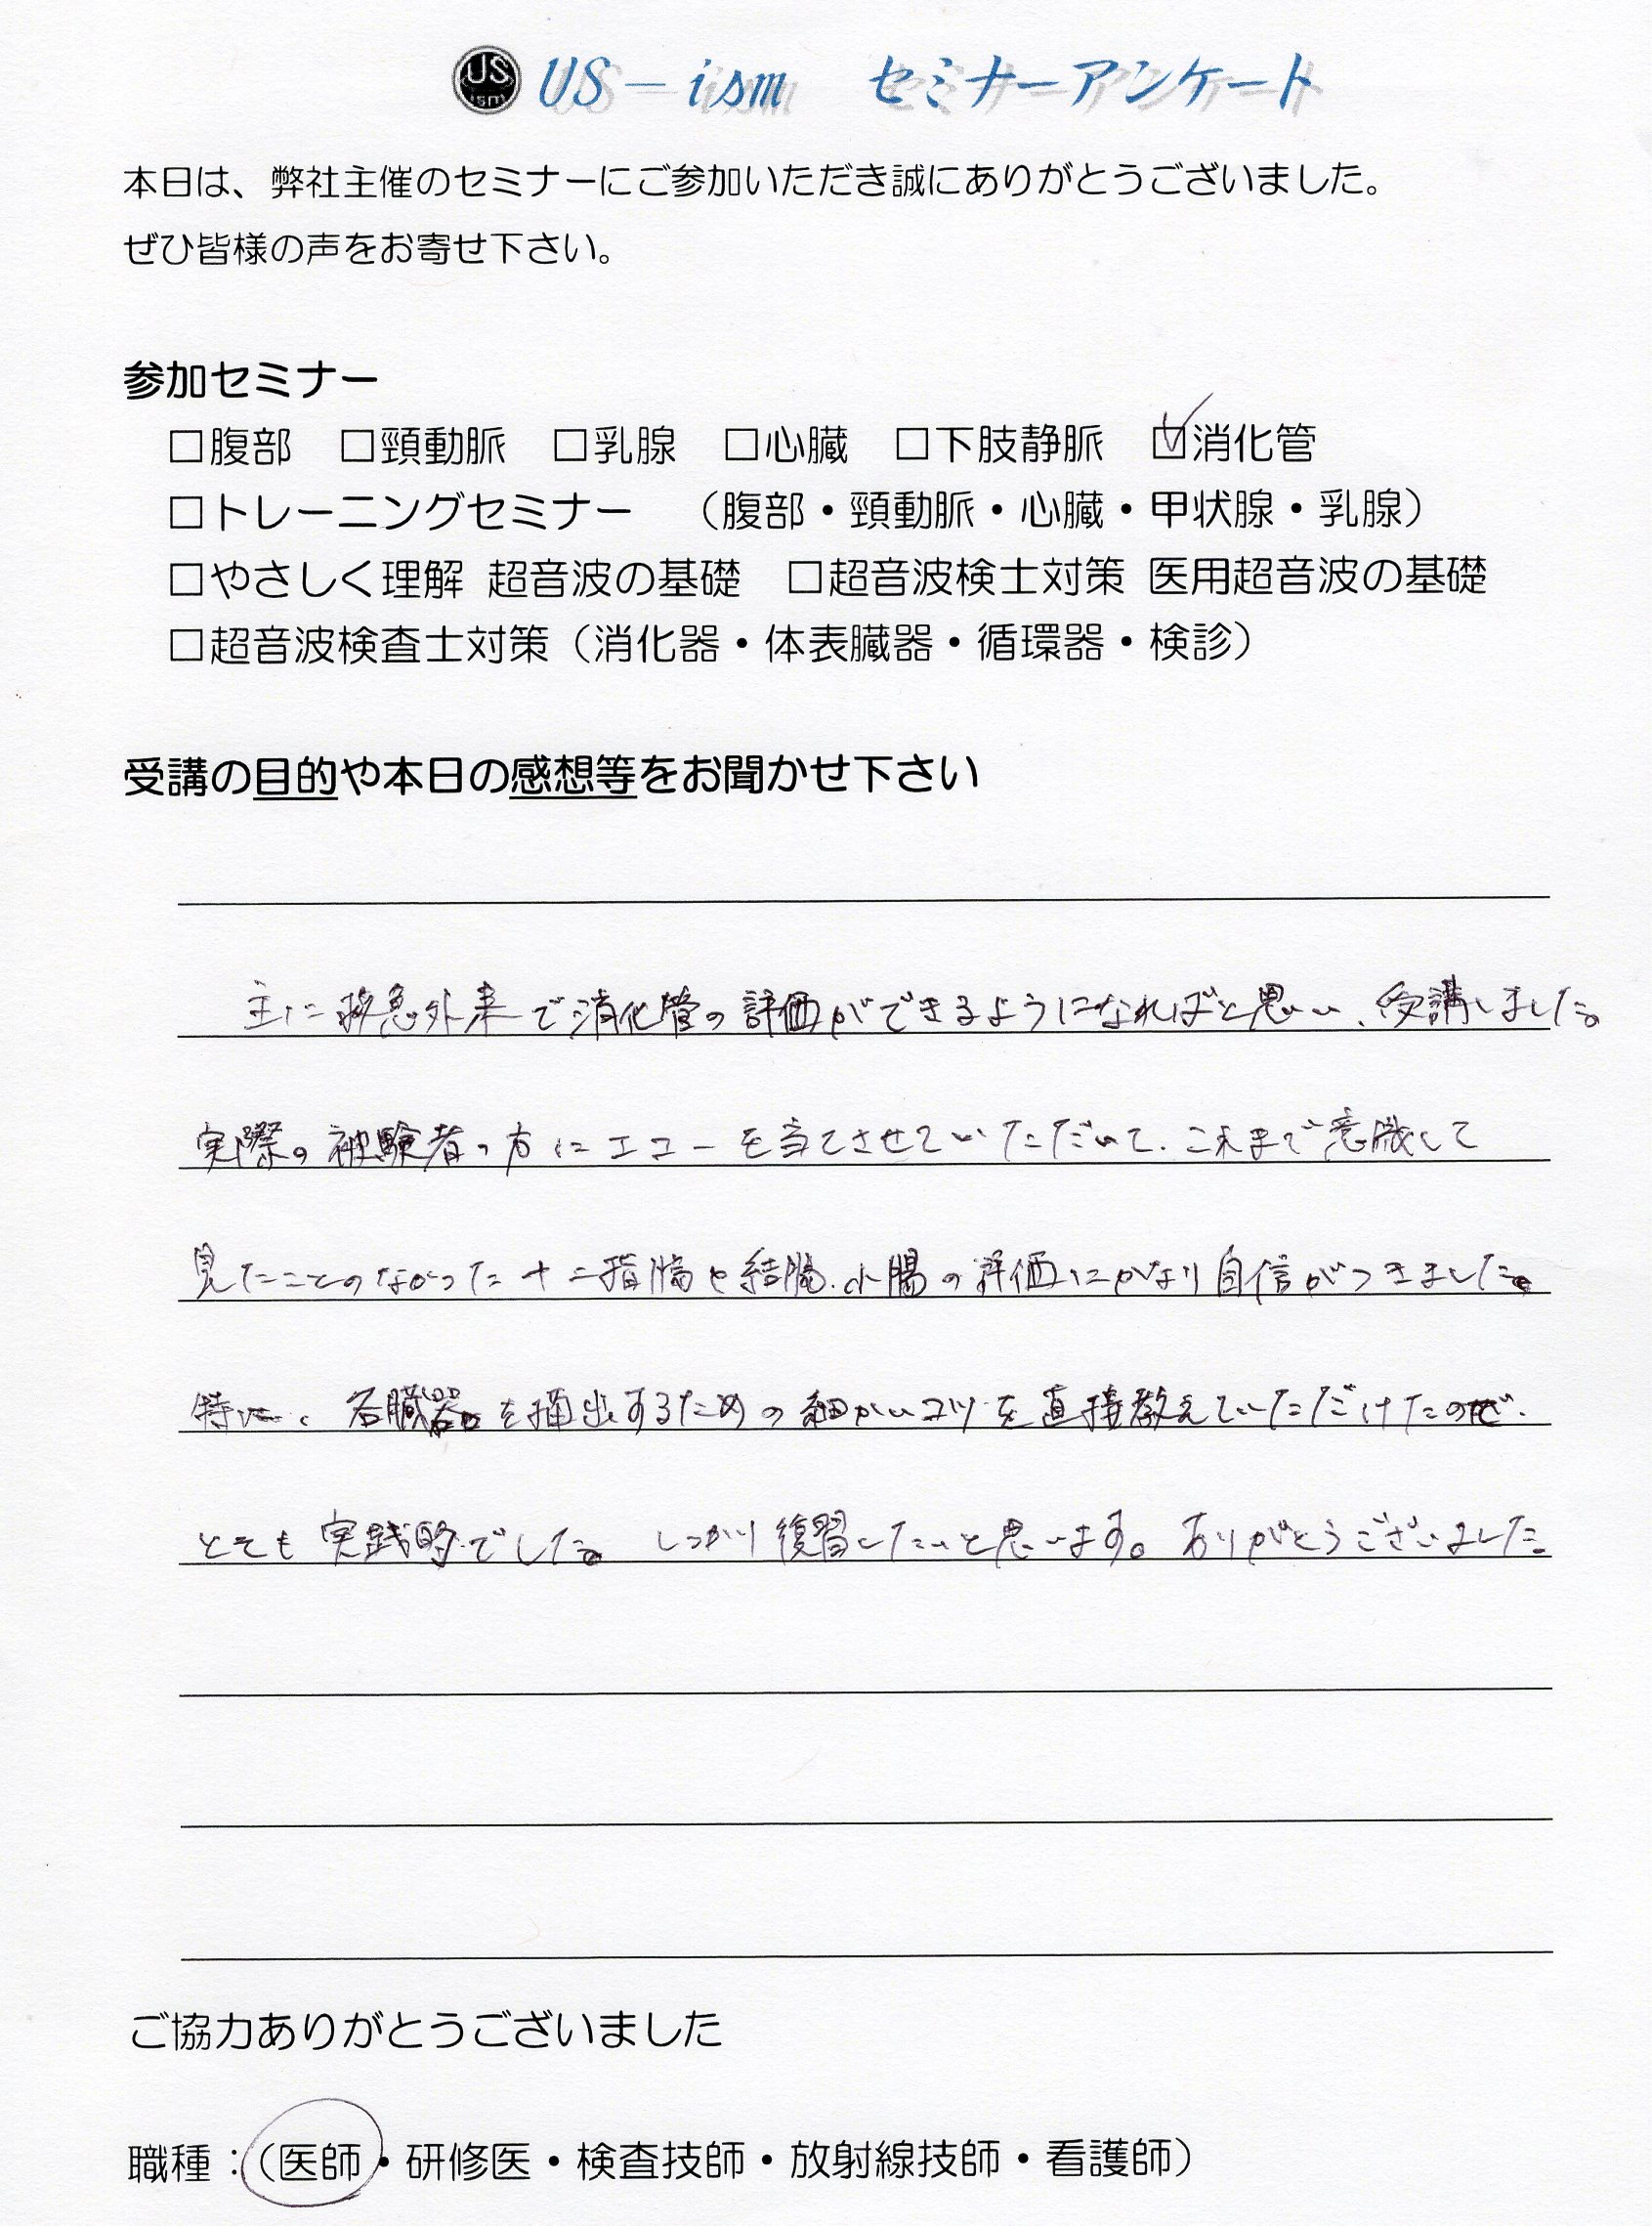 US ism US-ism セミナーアンケート
本日は、弊社主催のセミナーにご参加いただき誠にありがとうございました。
ぜひ皆様の声をお寄せ下さい。
参加セミナー
□腹部 □頸動脈 □乳腺 □心臓 □下肢静脈 ☑消化管
□トレーニングセミナー （腹部・頸動脈・心臓・甲状腺・乳腺）
□やさしく理解 超音波の基礎 □超音波検士対策 医用超音波の基礎
□超音波検査士対策（消化器・体表臓器・循環器・検診）
受講の目的や本日の感想等をお聞かせ下さい
主に救急外来で消化管の評価ができるようになればと思い、受講しました。
実際の被験者の方にエコーを当てさせていただいて、これまで意識して
見たことのなかった十二指腸や結腸、小腸の評価にかなり自信がつきました。
特に、各臓器を描出するための細かいコツを直接教えていただけたので、
とても実践的でした。しっかり復習したいと思います。ありがとうございました。
ご協力ありがとうございました
職種：（医師・研修医・検査技師・放射線技師・看護師）